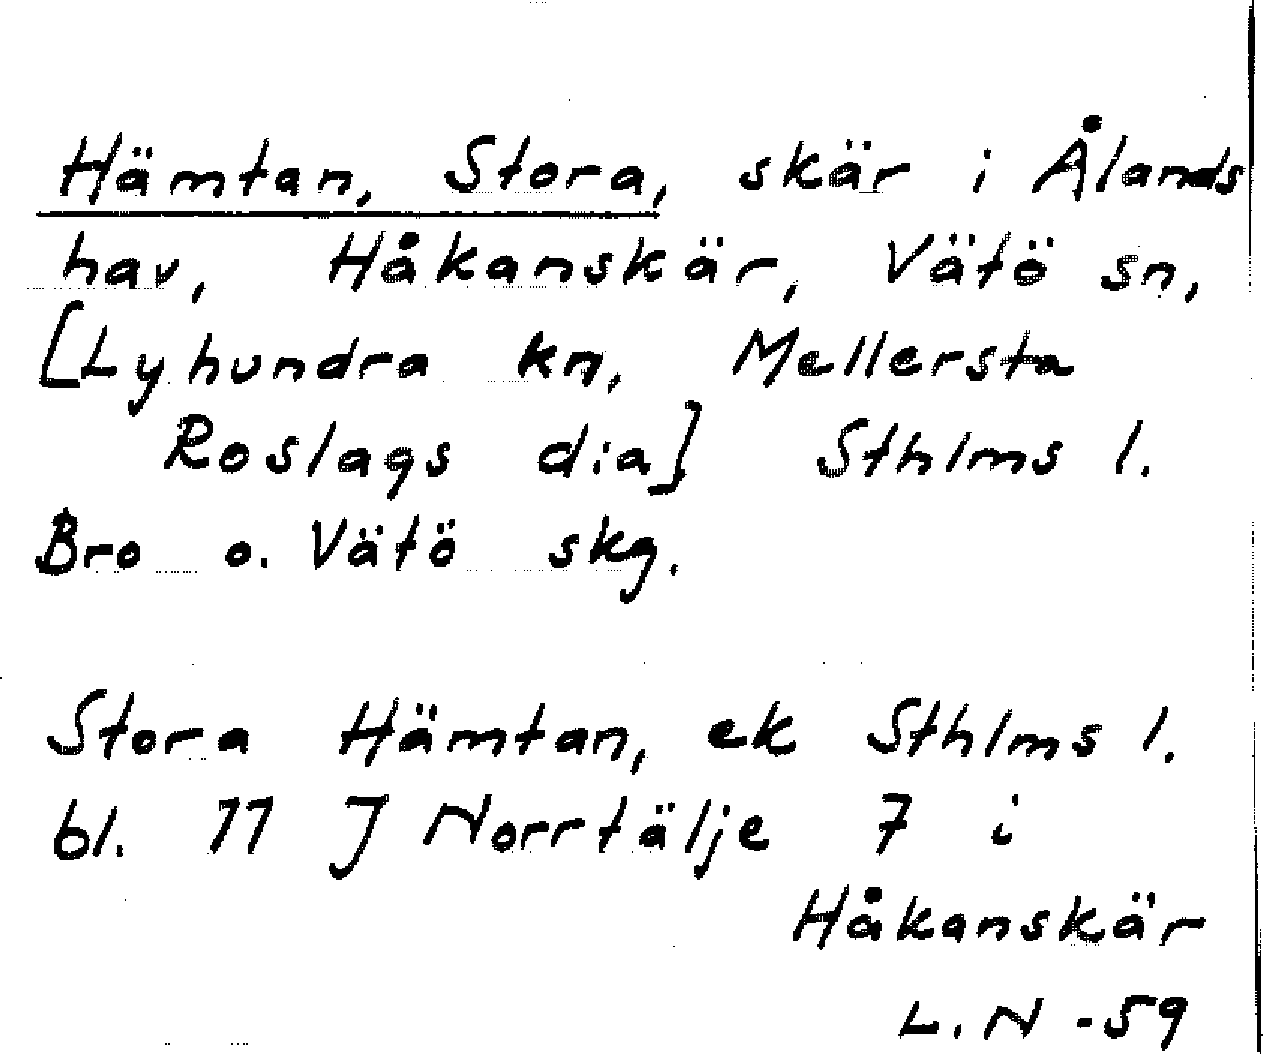 Hämtan, Stora, skär i Ålands
hav, Håkanskär, Vätö sn,
[Lyhundra kn, Mellersta
Roslags dia] Sthlms l.
Bro o. Vätö skg.
Stora Hämtan, ek Sthlms l.
bl. 11 J Norrtälje 7 i
Håkanskär
L.N -59